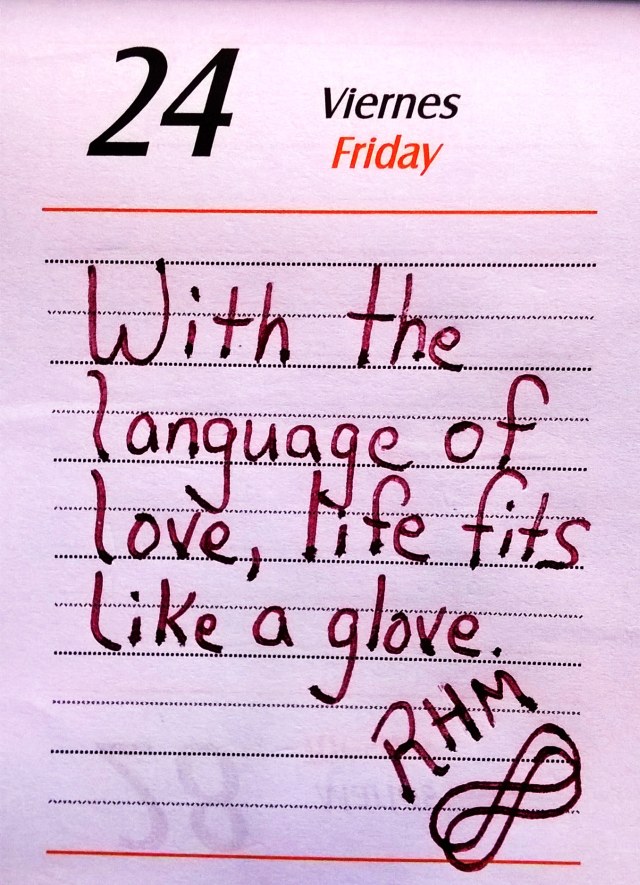 24
Viernes
Friday
With the
language of
love, life fits
like a glove.
RHM